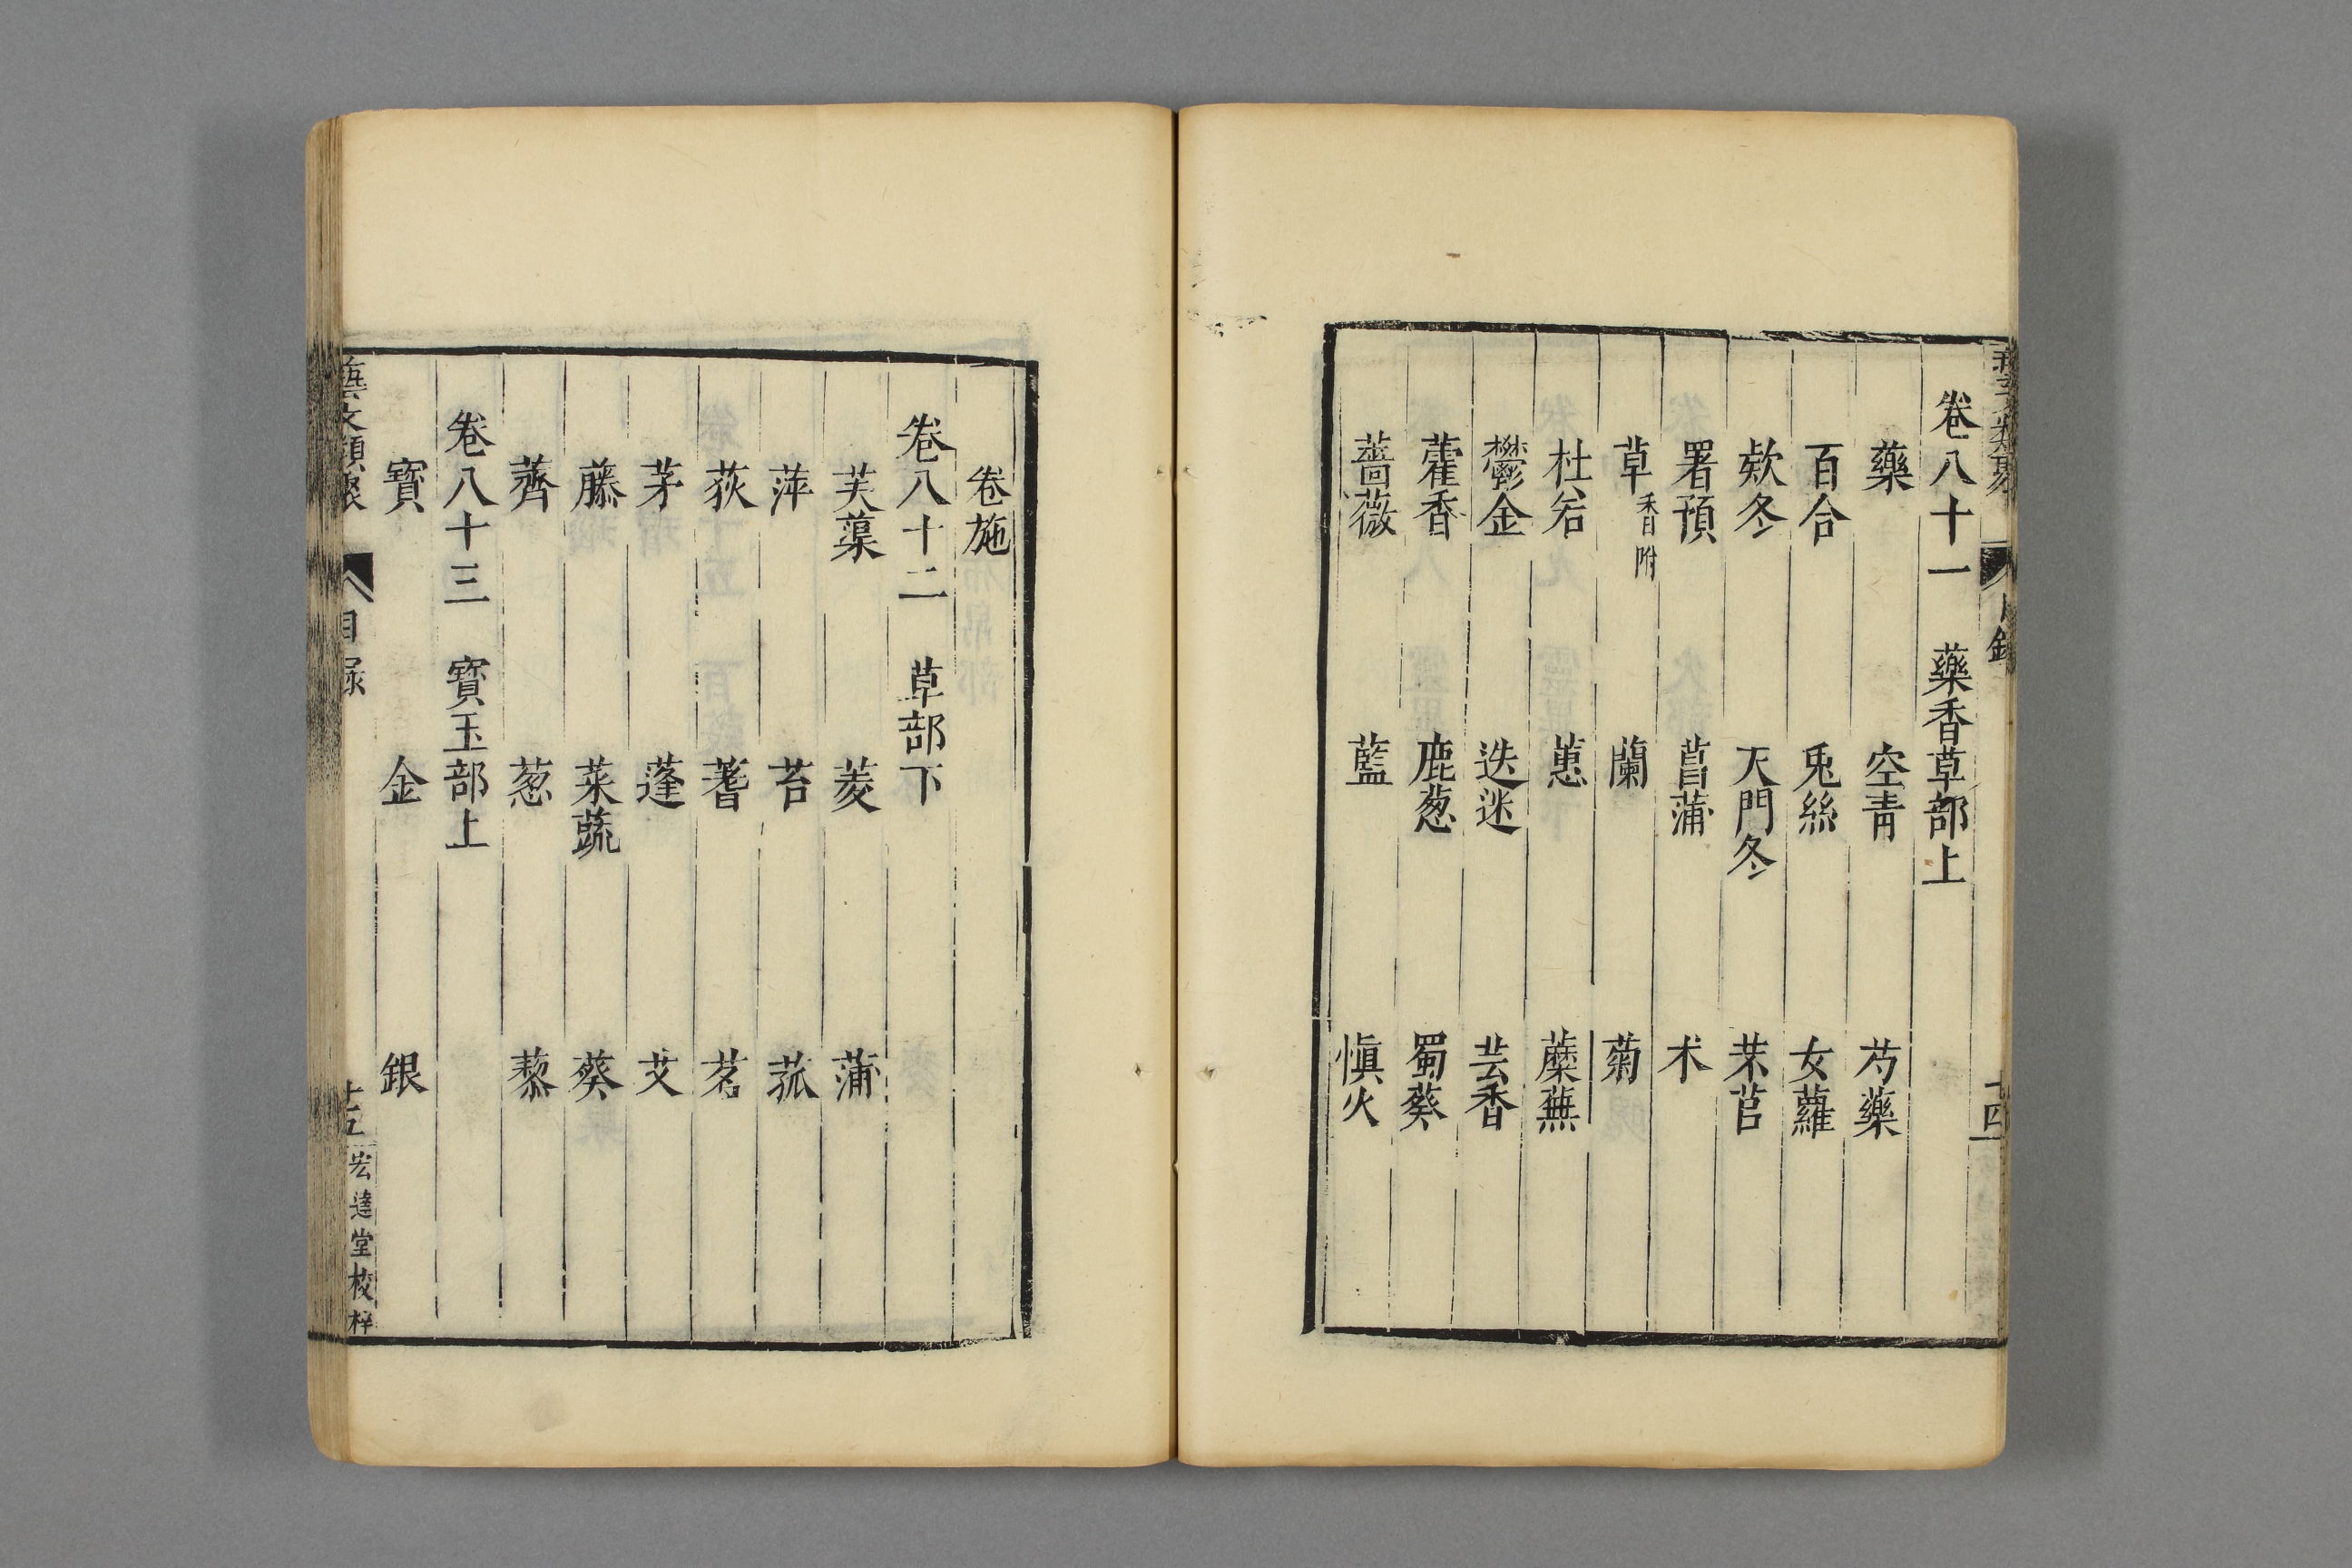 卷八十一　藥香草部上
藥　空青　芍藥
百合　兎絲　女蘿
欵冬　天門冬　芣苢
署預　菖蒲　术
草香附　蘭　菊
杜若　蕙　蘼蕪
鬱金　迭迷　芸香
藿香　鹿葱　蜀葵
薔薇　藍　慎火
卷施
卷八十二　草部下
芙蕖　菱　蒲
萍　苔　菰
荻　蓍　茗
茅　蓬　艾
藤　菜蔬　葵
薺　葱　藜
卷八十三　寶玉部上
寶　金　銀
藝文類聚　目録　宏達堂校梓